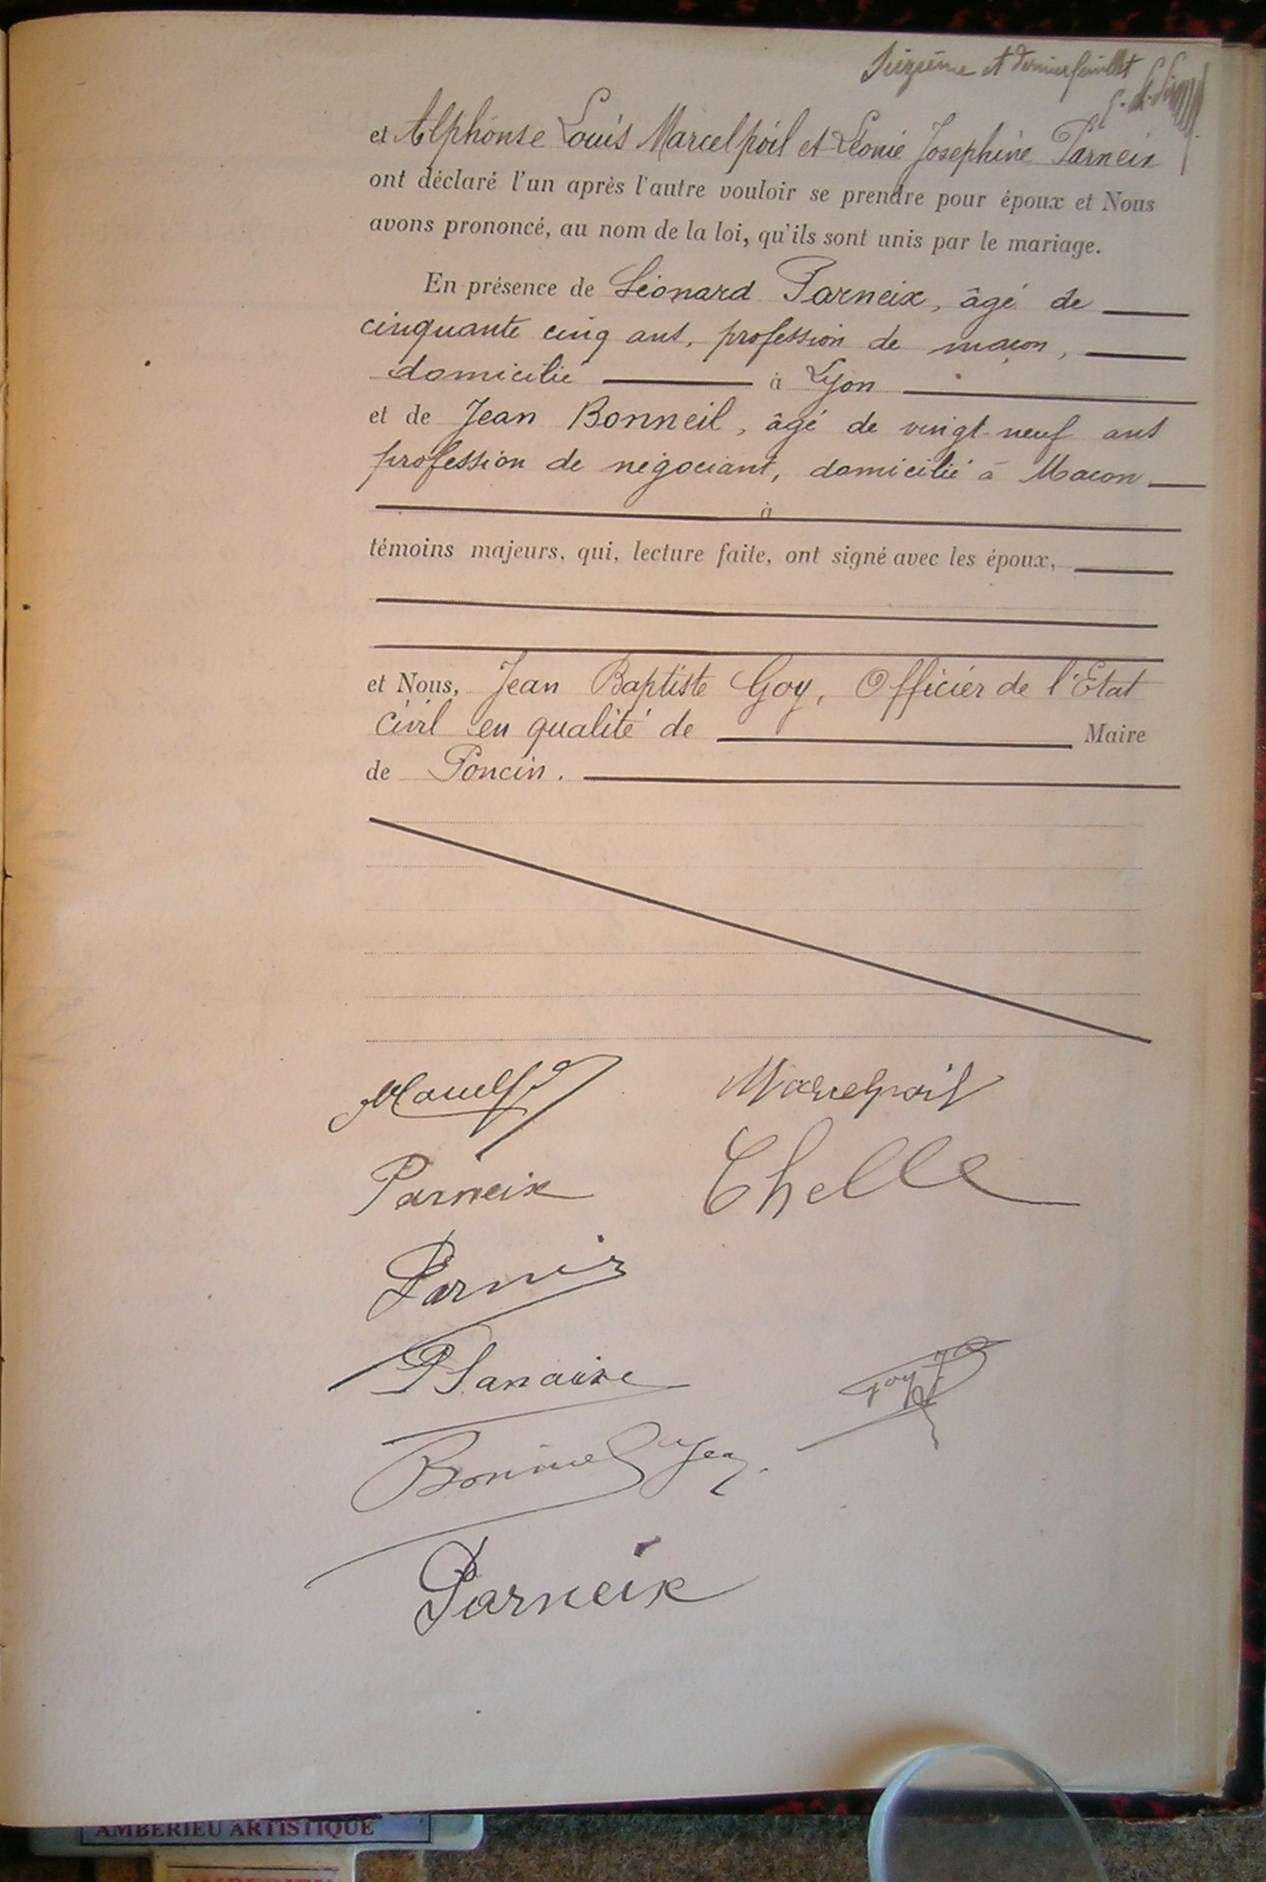 Seizième et dernier feuillet
et Alphonse Louis Marcelpoil et Léonie Josephine Parneix
ont déclaré l'un après l'autre vouloir se prendre pour époux et Nous
avons prononcé, au nom de la loi, qu'ils sont unis par le mariage.
En présence de Léonard Parneix, âgé de
cinquante cinq ans, profession de maçon,
domicilié à Lyon
et de Jean Bonneil, âgé de vingt-neuf ans
profession de négociant, domicilié à Macon
à
témoins majeurs, qui, lecture faite, ont signé avec les époux,
et Nous, Jean Baptiste Goy, Officier de l'Etat
civil en qualité de Maire
de Poncin.
Marcelpoil
Parneix Chelle
Planaise
Parneix
AMBERIEU ARTISTIQUE
AMBERIEU